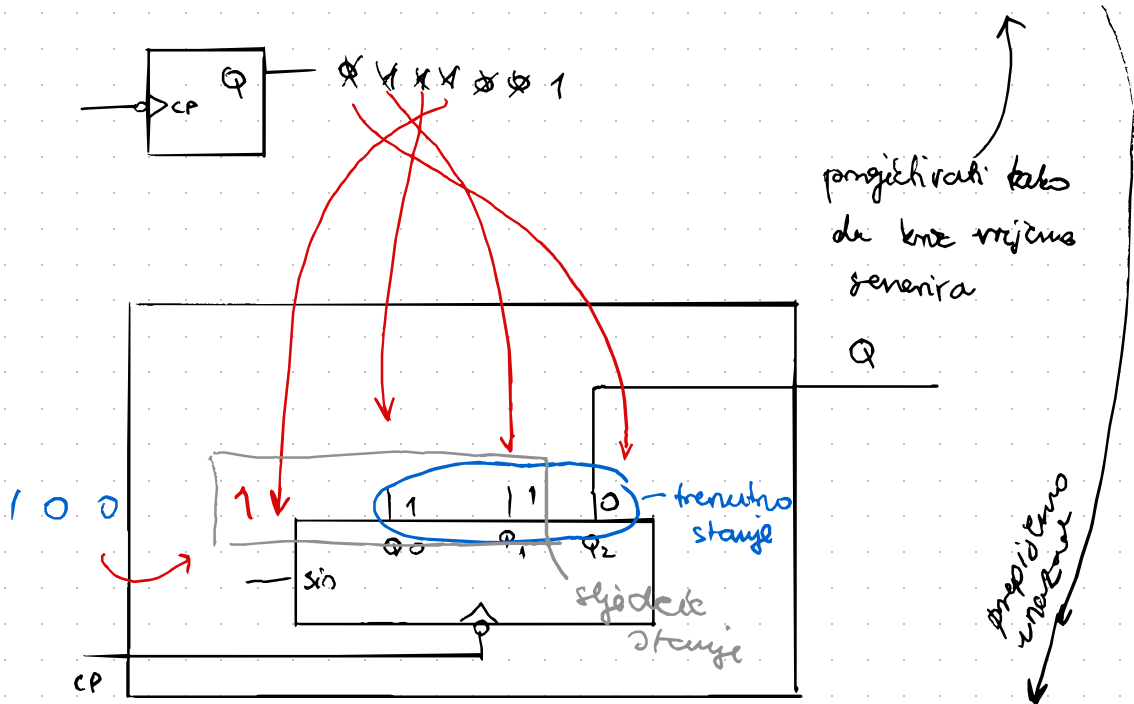 Q 0 1 1 1 0 0 1
CP
projektirati tako
da kroz vrijeme
generira
Q
1 0 0
1 1 1 0
trenutno
stanje
Q0 Q1 Q2
sin
sljedeće
stanje
prepisujemo
unazad
CP